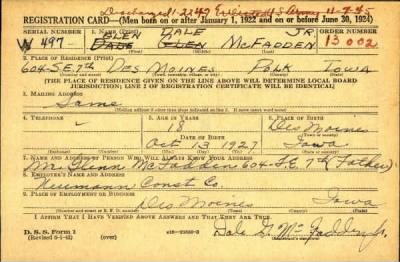 Discharged 1-2249 Enlisted U S Army 11-9-45
REGISTRATION CARD—(Men born on or after January 1, 1922 and on or before June 30, 1924)
SERIAL NUMBER 1. NAME (Print) ORDER NUMBER
W 497 GLEN DALE JR 13002
DALE GLEN McFADDEN
2. PLACE OF RESIDENCE (Print)
604-SE 7th DES MOINES POLK IOWA
(THE PLACE OF RESIDENCE GIVEN ON THE LINE ABOVE WILL DETERMINE LOCAL BOARD
JURISDICTION; LINE 2 OF REGISTRATION CERTIFICATE WILL BE IDENTICAL)
3. MAILING ADDRESS
Same
4. TELEPHONE 5. AGE IN YEARS 6. PLACE OF BIRTH
18 Des Moines
DATE OF BIRTH
Oct 13 1927 Iowa
7. NAME AND ADDRESS OF PERSON WHO WILL ALWAYS KNOW YOUR ADDRESS
Mr. Glenn McFadden 604-S.E. 7th (Father)
8. EMPLOYER'S NAME AND ADDRESS
Neumann Const Co.
9. PLACE OF EMPLOYMENT OR BUSINESS
Des Moines Iowa
I AFFIRM THAT I HAVE VERIFIED ABOVE ANSWERS AND THAT THEY ARE TRUE.
D. S. S. Form 1
Dale G. McFadden Jr.